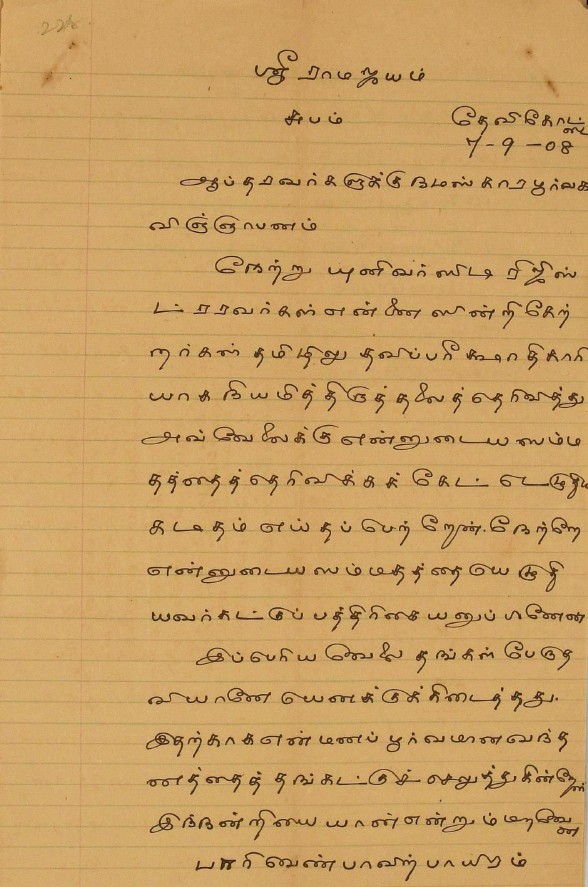 ஸ்ரீ ராமஜயம்
சுபம் தேவிகோட்டை
7-9-08
ஆப்தரவர்களுக்கு நமஸ்காரபூர்வக
விஞ்ஞாபனம்
நேற்று யுனிவர்ஸிடி ரிஜிஸ்
ட்ரரவர்கள் என்னை ஸின்றிகேற்
றர்கள் தமிழிலு தவிப்பரீக்ஷாதிகாரி
யாக நியமித்திருத்தலைத் தெரிவித்து
அவ் வேலைக்கு என்னுடைய ஸம்ம
தத்தைத் தெரிவிக்கக் கேட்
கடிதம் எய்தப் பெற்றேன். நேற்றே
என்னுடைய ஸம்மதத்தை யெழுதி
யவர்கட்குப் பத்திரிகை யனுப்பினேன்
இப்பெரிய வேலை தங்கள் பேருத
வியானே யெனக்குக் கிடைத்தது.
இதற்காக என் மனப்பூர்வமான வந்த
னத்தைத் தங்கட்குச் செலுத்துகின்றேன்
இந்நன்றியை யான் என்றும் மறவேன்
பாகரிவெண்பாவிற் பாயிரம்